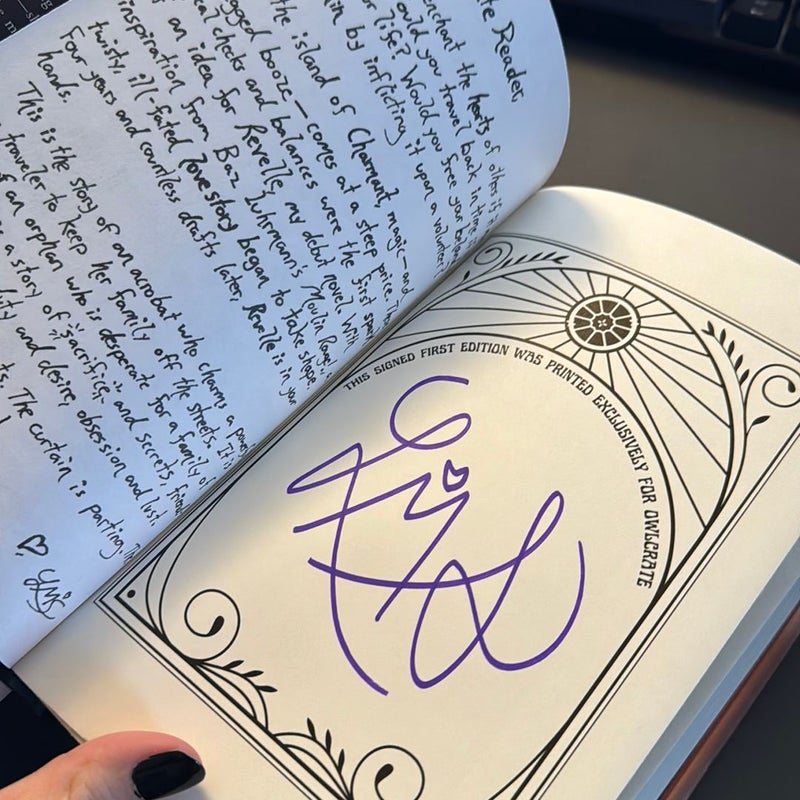 Reader,
enchant the hearts of others if it
you travel back in time
life? Would you free your
by inflicting it upon a volunteer
the island of Charmant, magic—and
booze—comes at a steep price.
checks and balances were the first
an idea for Revelle, my debut novel. With
inspiration from Baz Luhrmann's Moulin Rouge,
twisty, ill-fated love story began to take shape.
Four years and countless drafts later, Revelle is in your
hands.
This is the story of an acrobat who charms a
traveler to keep her family off the streets. It is
an orphan who is desperate for a family of
a story of sacrifice, and secrets,
and desire, obsession and lust.
The curtain is parting.
THIS SIGNED FIRST EDITION WAS PRINTED EXCLUSIVELY FOR OWLCRATE